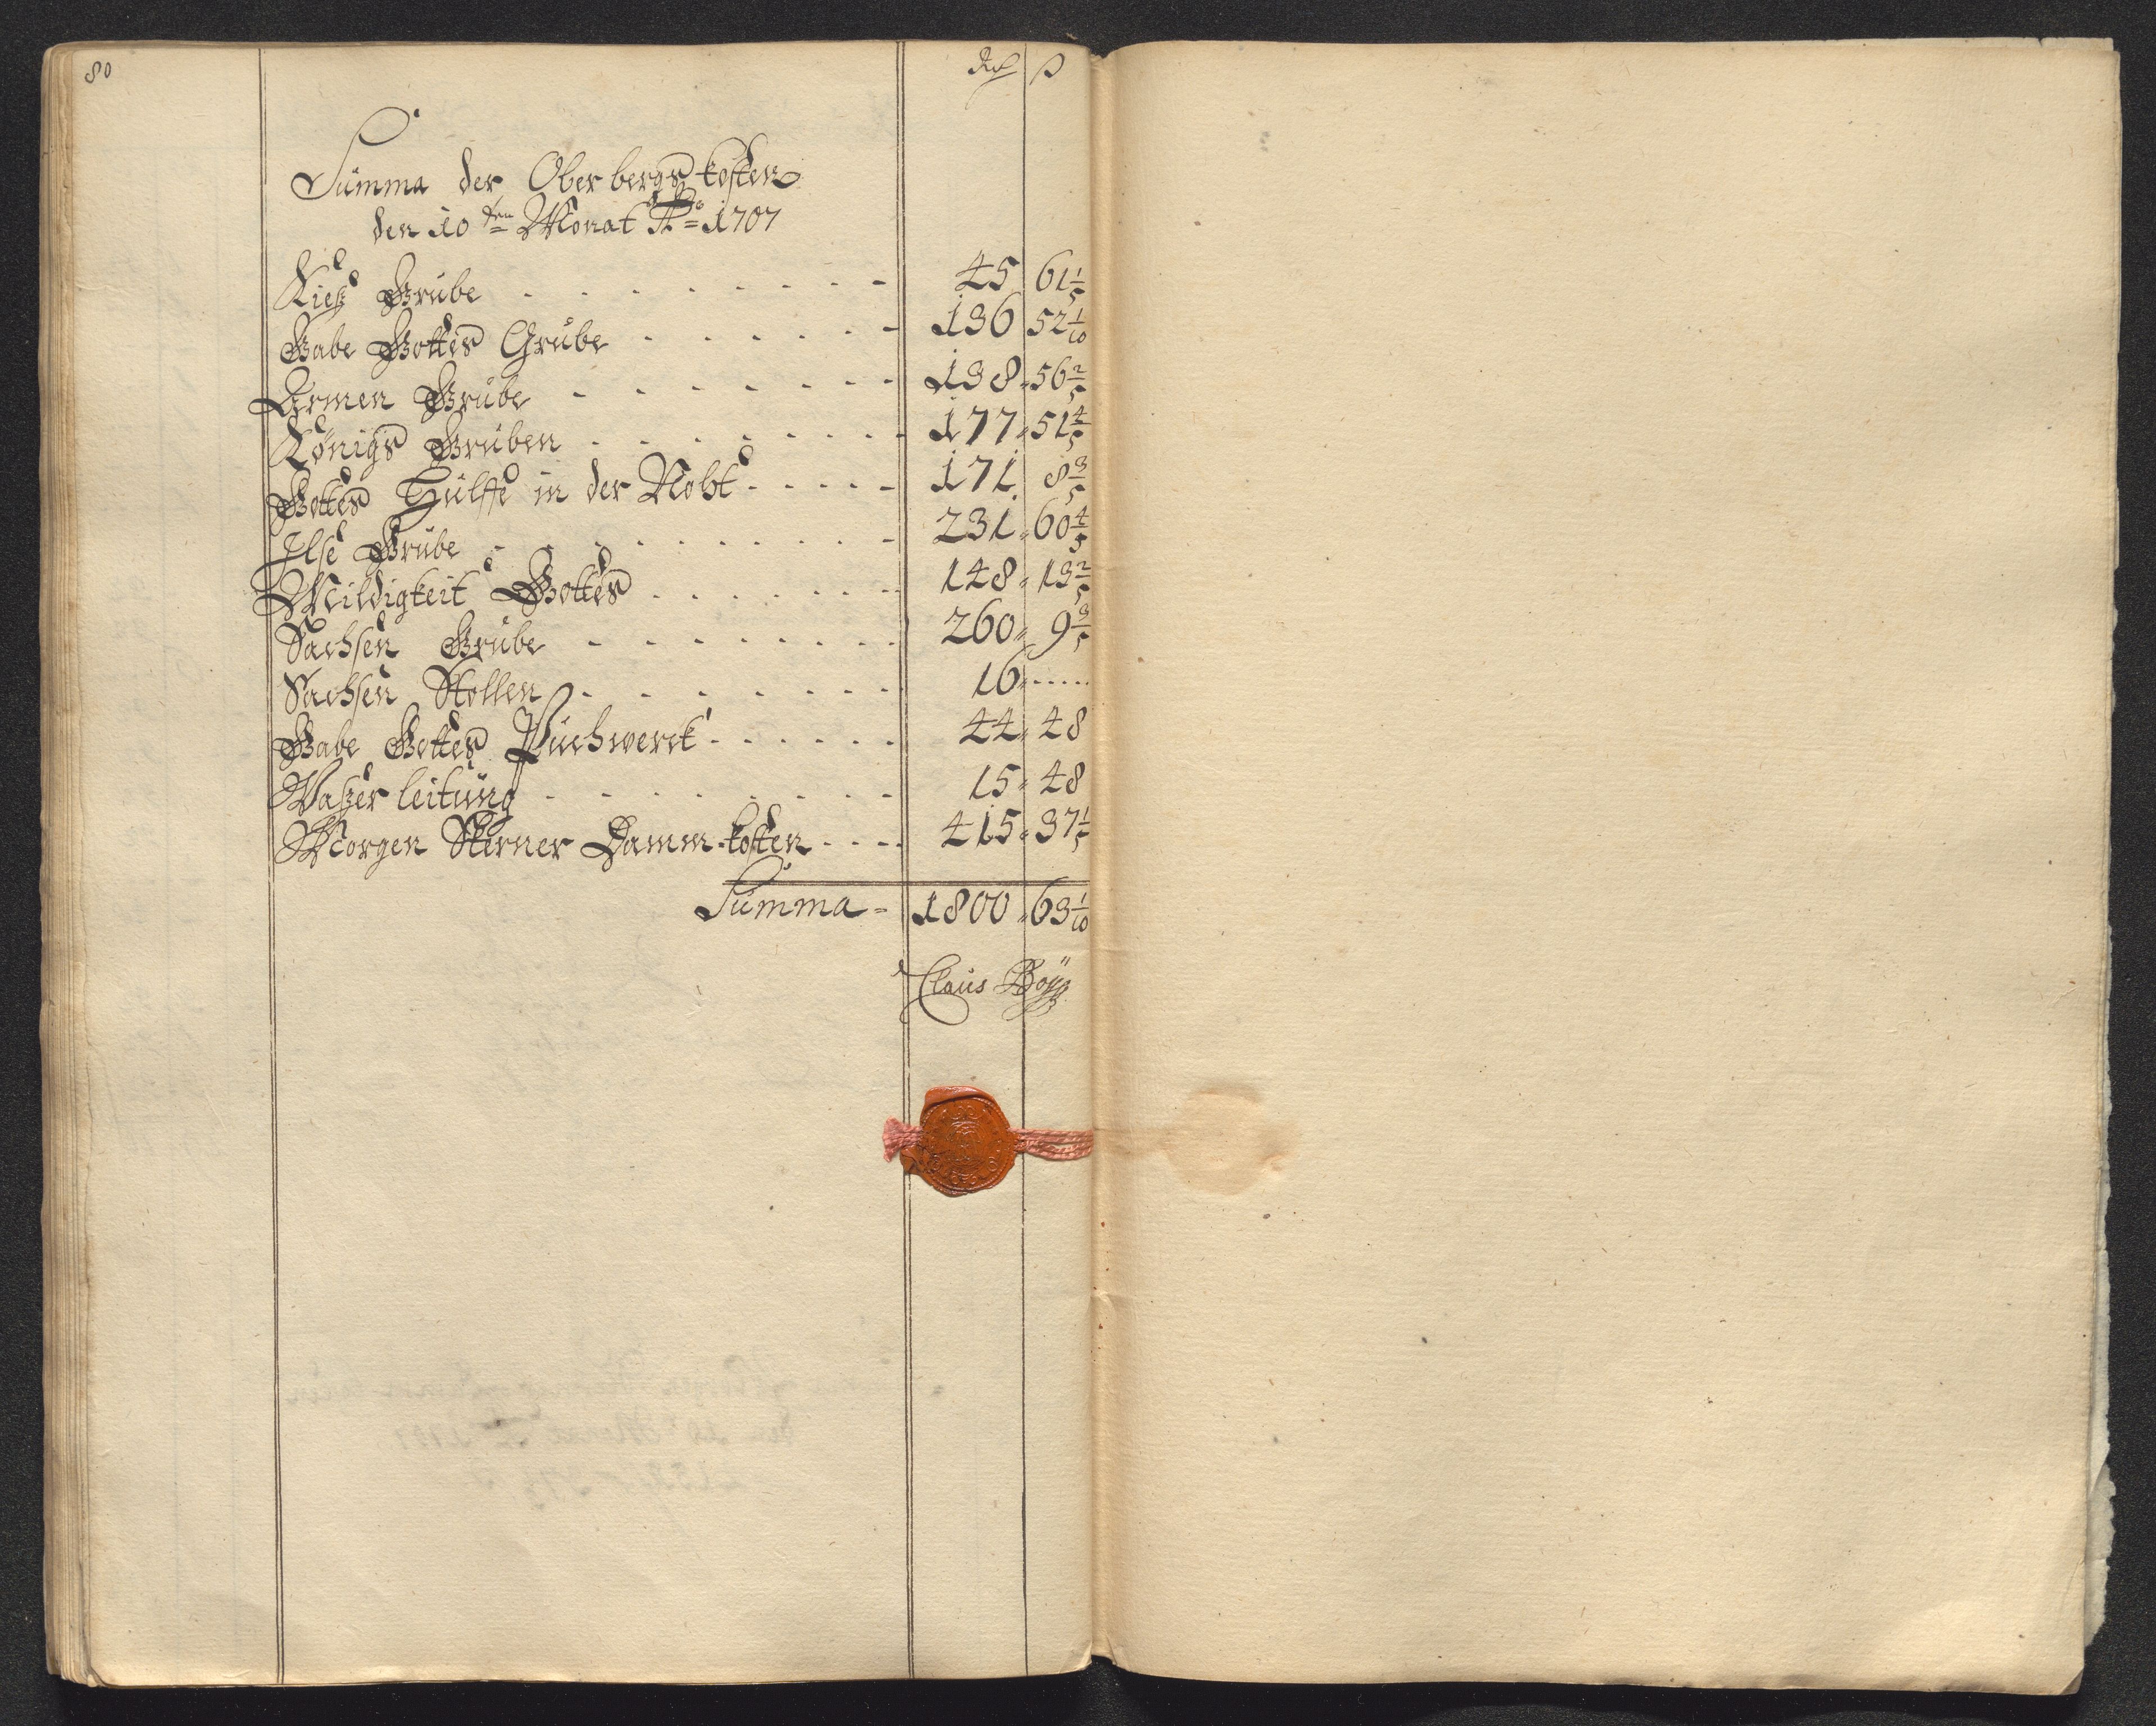 80
Rd ß
Summa der Oberbergs kosten
den 10ten Monat Ao 1707
Kieß Grube - - - - - - - 45 61 1/5
Gabe Gottes Grube - - - - - 136 52 1/10
Armen Grube - - - - - - - 138 56 2/5
Königs Gruben - - - - - - - 177 51 4/5
Gottes Hülffe in der Noht - - - - - 171 8 3/5
Ilse Grube - - - - - - - - 231 60 4/5
Mildigkeit Gottes - - - - - - 148 13 2/5
Sachsen Grube - - - - - - - 260 9 3/5
Sachsen Stollen - - - - - - - 16 .....
Gabe Gottes Puchwerck - - - - - - 44 48
Waßer leitung - - - - - - - - 15 48
Morgen Sterner Damm-kosten - - - - 415 37 1/5
Summa - 1800 63 1/10
Claus